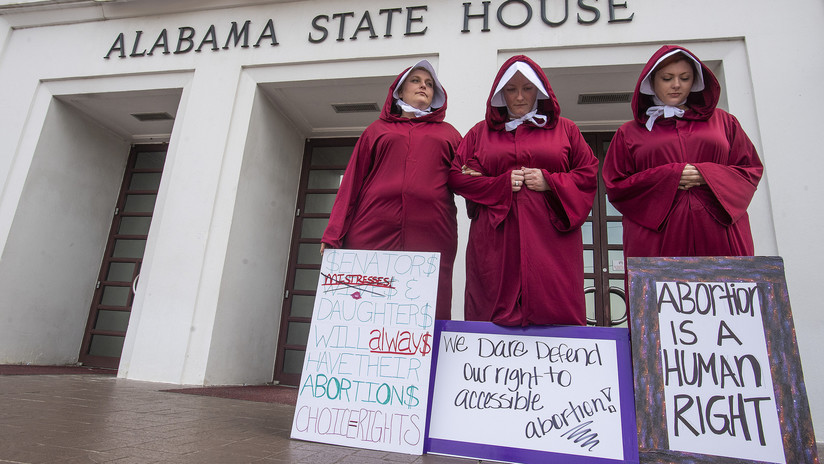 ALABAMA STATE HOUSE
$ENATOR$
MISTRESSES!
&
DAUGHTER$
WILL alway$
HAVE THEIR
ABORTION$
CHOICE=RIGHTS
We Dare Defend
our right to
accessible
abortion!
ABORTION
IS A
HUMAN
RIGHT